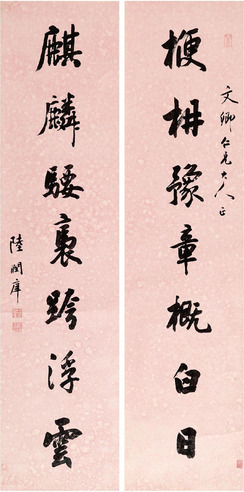 文卿仁兄大人正
楩枏豫章概白日
麒麟騕褭跨浮雲
陸潤庠